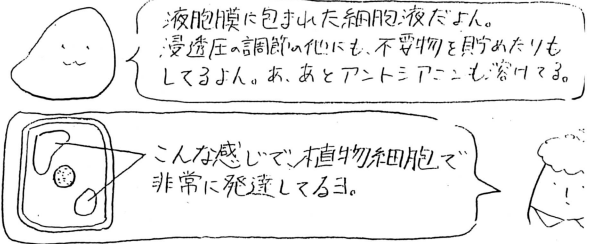 液胞膜に包まれた細胞液だよん。
浸透圧の調節の他にも、不要物を貯めたりも
してるよん。あ、あとアントシアニンも溶けてる。
こんな感じで、植物細胞で
非常に発達してるヨ。